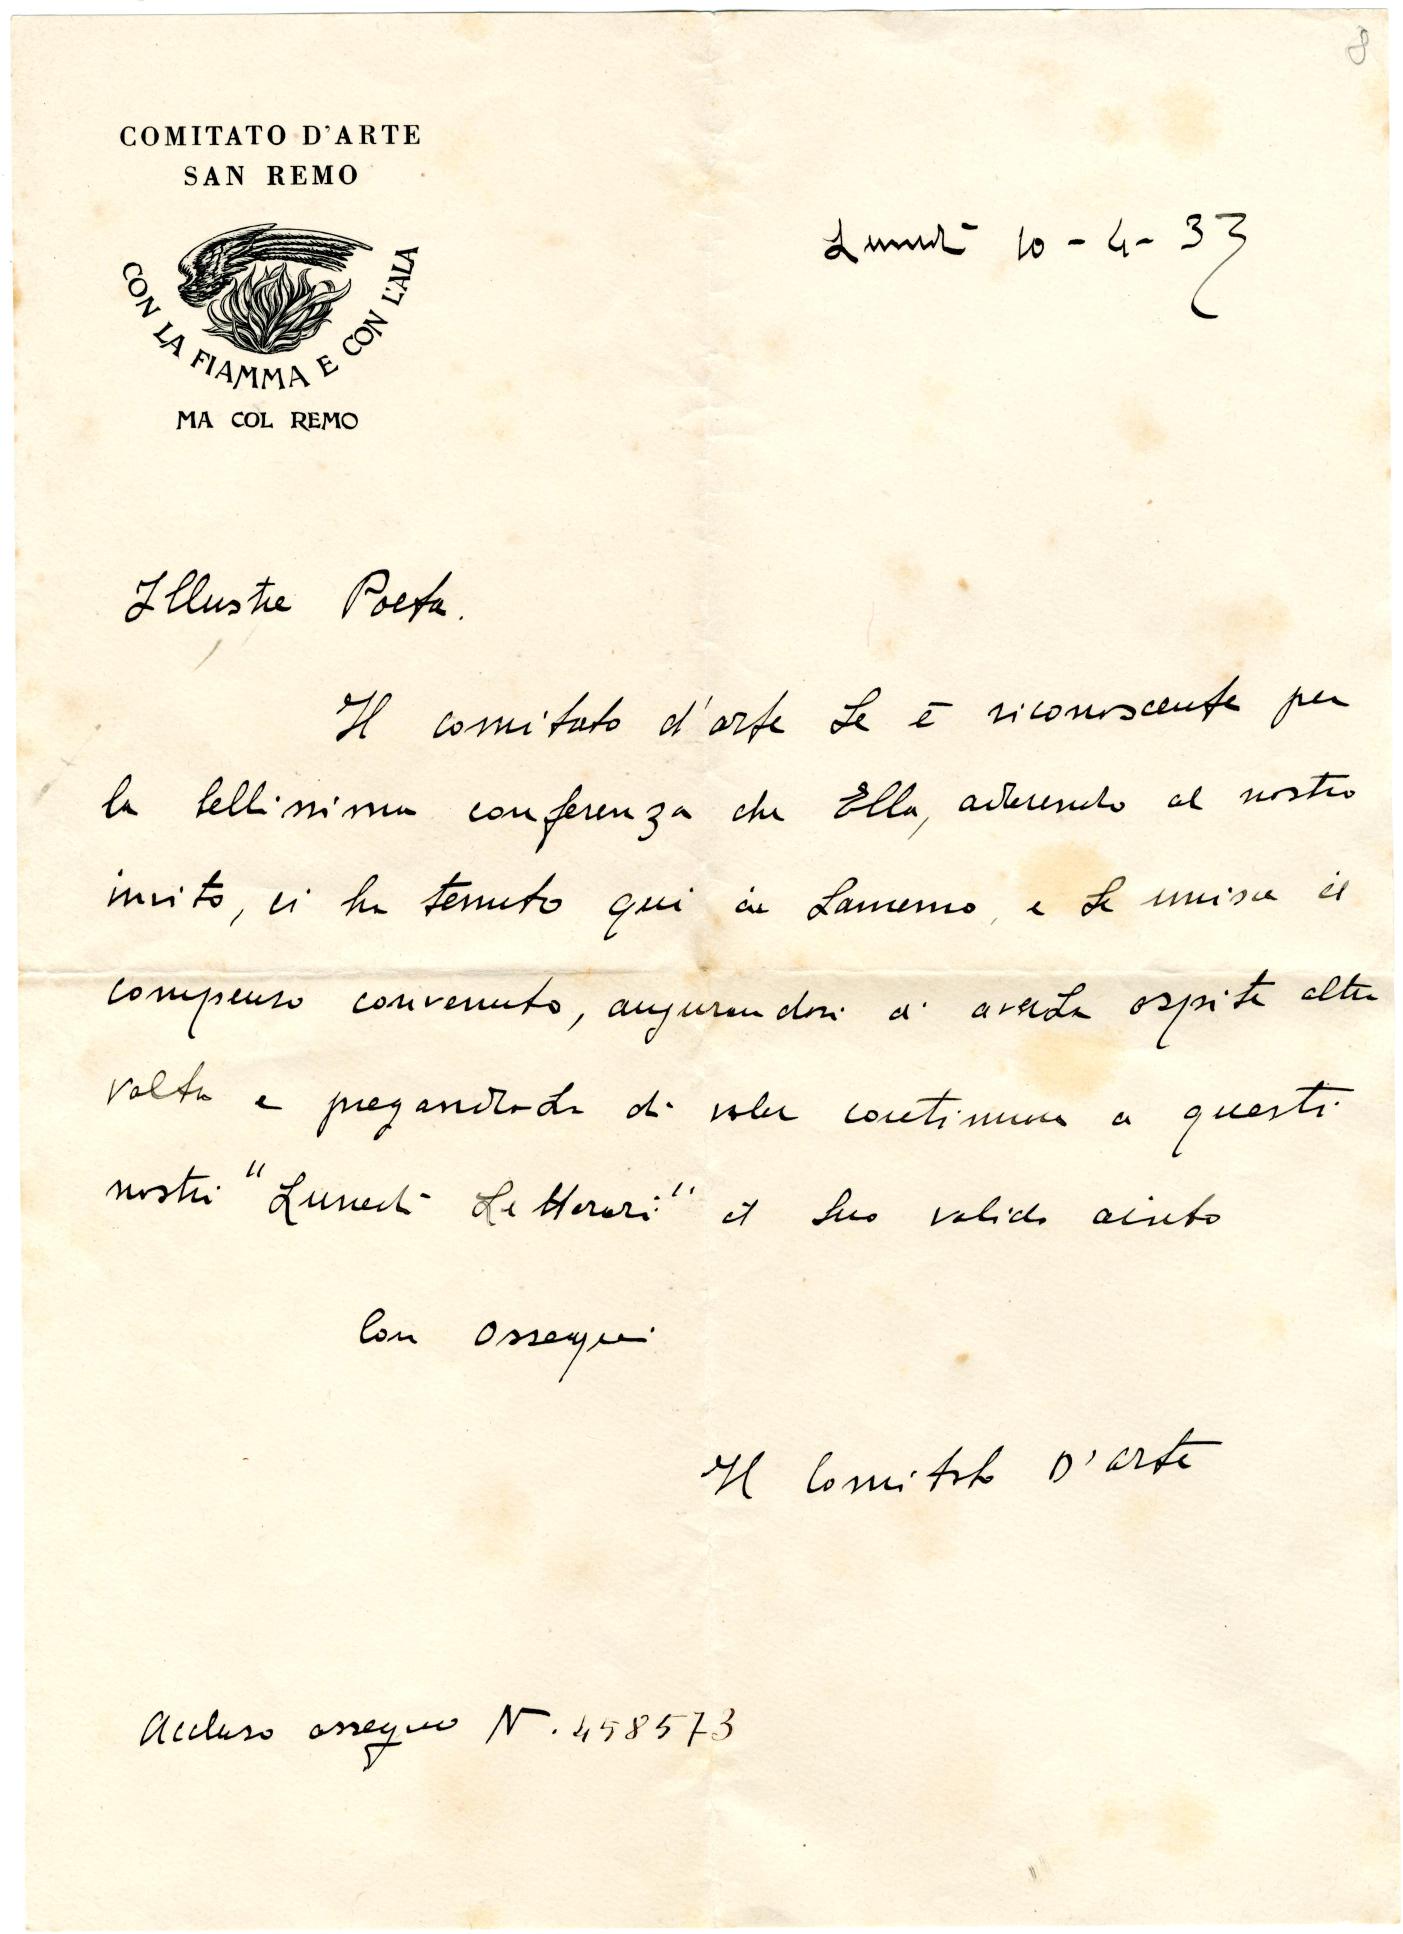 8
COMITATO D'ARTE
SAN REMO
CON LA FIAMMA E CON L'ALA
MA COL REMO
Lunedì 10-4-33
Illustre Poeta.
Il comitato d'arte Le è riconoscente per
la bellissima conferenza che Ella, aderendo al nostro
invito, ci ha tenuto qui in Sanremo, e Le unisce il
compenso convenuto, augurandosi di averLa ospite altra
volta e pregandoLa di voler continuare a questi
nostri "Lunedì Letterari" il Suo valido aiuto
Con ossequi
Il Comitato D'arte
Accluso assegno N. 458573